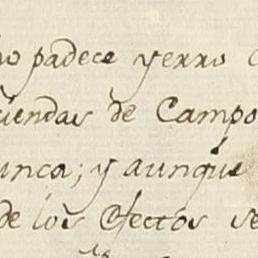 no padece yerro
iendas de Campo
unca; y aunque
de los Efectos se